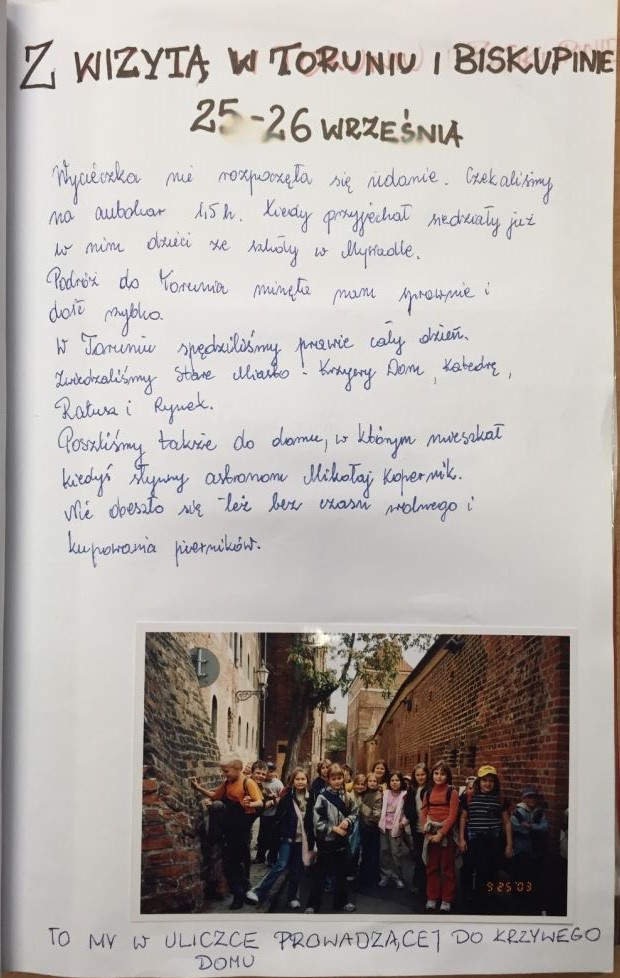 Z WIZYTĄ W TORUNIU I BISKUPINIE
25-26 WRZEŚNIA
Wycieczka nie rozpoczęła się udanie. Czekaliśmy
na autokar 1,5 h. Kiedy przyjechał siedziały już
w nim dzieci ze szkoły w Mywadle.
Podróż do Torunia minęła nam sprawnie i
dość szybko.
W Toruniu spędziliśmy prawie cały dzień.
Zwiedzaliśmy Stare Miasto: Krzywy Dom, Katedrę,
Ratusz i Rynek.
Poszliśmy także do domu, w którym mieszkał
kiedyś słynny astronom Mikołaj Kopernik.
Nie obeszło się też bez czasu wolnego i
kupowania pierników.
9 25 '03
TO MY W ULICZCE PROWADZĄCEJ DO KRZYWEGO
DOMU